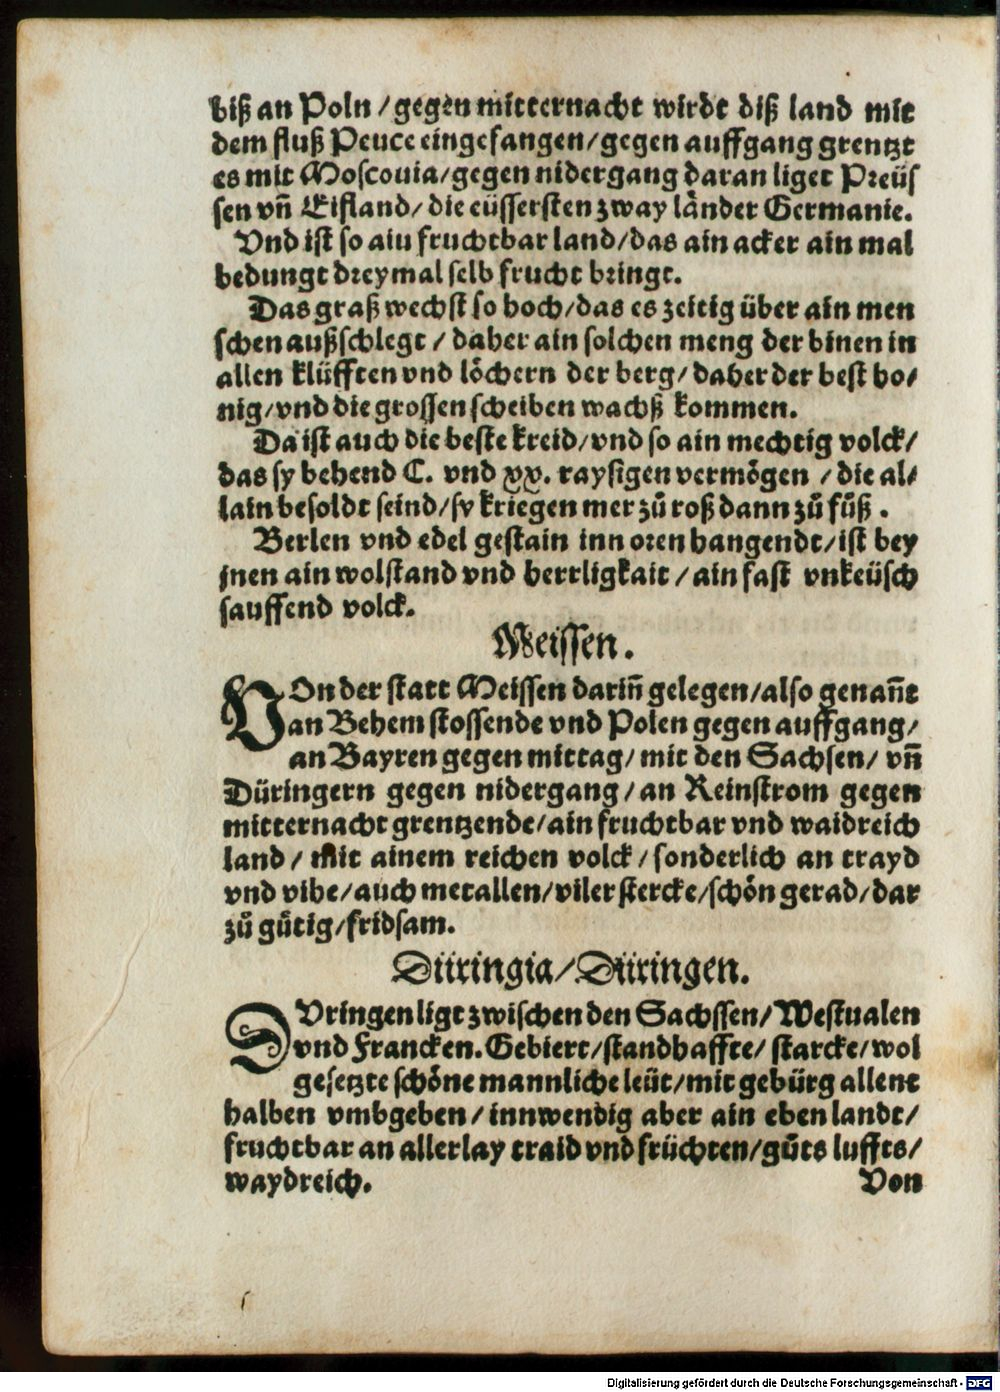 biß an Poln / gegen mitternacht wirdt diß land mit
dem fluß Peuce eingefangen / gegen auffgang grentzt
es mit Moscouia / gegen nidergang daran liget Preüs
sen vñ Eifland / die eüssersten zway lånder Germanie.
Vnd ist so aiu fruchtbar land / das ain acker ain mal
bedungt dreymal selb frucht bringt.
Das graß wechst so hoch / das es zeitig über ain men
schen außschlegt / daher ain solchen meng der binen in
allen klüfften vnd löchern der berg / daher der best ho⸗
nig / vnd die grossen scheiben wachß kommen.
Da ist auch die beste kreid / vnd so ain mechtig volck /
das sy behend C. vnd xx. raysigen vermögen / die al⸗
lain besoldt seind / sy kriegen mer zů roß dann zů fůß .
Berlen vnd edel gestain inn oren hangendt / ist bey
jnen ain wolstand vnd herrligkait / ain fast vnkeüsch
sauffend volck.
Meissen.
VOn der statt Meissen dariñ gelegen / also genañt
an Behem stossende vnd Polen gegen auffgang /
an Bayren gegen mittag / mit den Sachsen / vñ
Düringern gegen nidergang / an Reinstrom gegen
mitternacht grentzende / ain fruchtbar vnd waidreich
land / Mit ainem reichen volck / sonderlich an trayd
vnd vihe / auch metallen / viler stercke / schön gerad / dar
zů gůtig / fridsam.
Düringia / Düringen.
DVringen ligt zwischen den Sachssen / Westualen
vnd Francken. Gebiert / standhaffte / starcke / wol
gesetzte schöne mannliche leüt / mit gebürg allent
halben vmbgeben / innwendig aber ain eben landt /
fruchtbar an allerlay traid vnd früchten / gůts luffts /
waydreich. Von
Digitalisierung gefördert durch die Deutsche Forschungsgemeinschaft - DFG